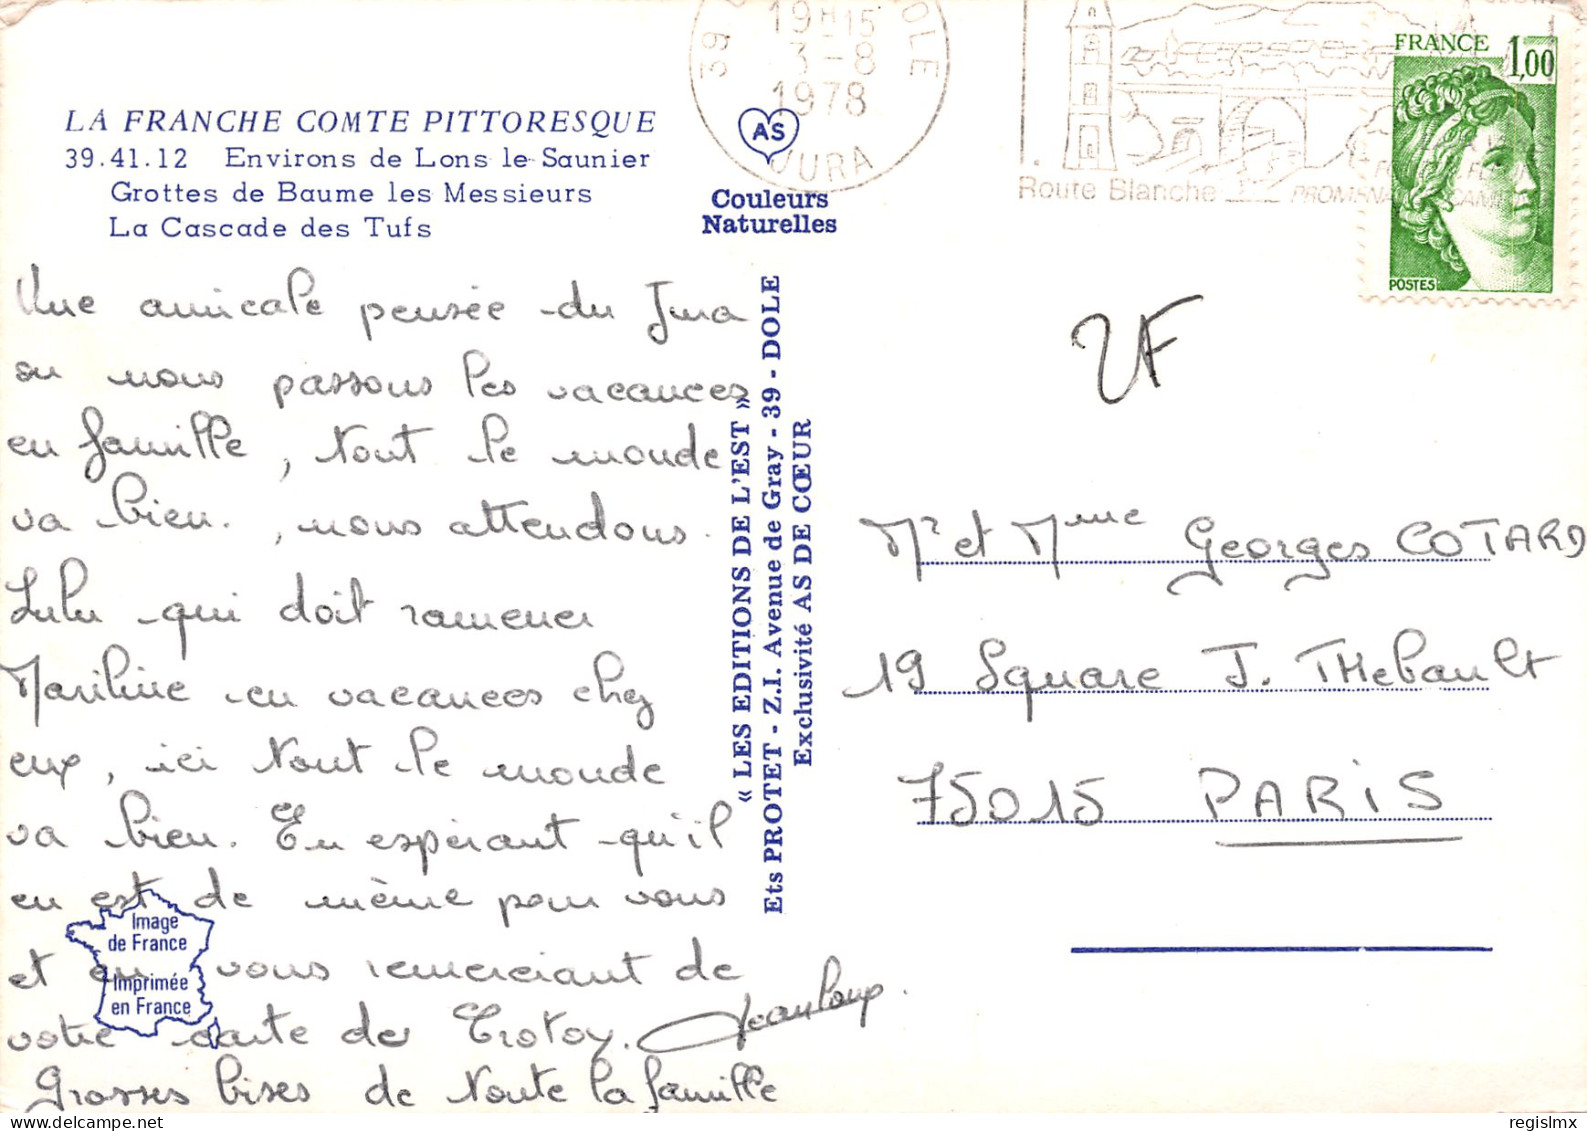 LA FRANCHE COMTE PITTORESQUE
39.41.12 Environs de Lons le Saunier
Grottes de Baume les Messieurs
La Cascade des Tufs
AS
Couleurs
Naturelles
39 OLE
19H15
3-8
1978
JURA
Route Blanche
FRANCE 1,00
POSTES
Une amicale pensée du Jura
ou nous passons les vacances
en famille, tout le monde
va bien., nous attendons.
Lulu qui doit ramener
Mariline en vacances chez
eux, ici tout le monde
va bien. En espérant qu'il
en est de même pour vous
et en vous remerciant de
votre carte de
Jeanloup.
Grosses bises de toute la famille
Image
de France
Imprimée
en France
« LES EDITIONS DE L'EST »
Ets PROTET - Z.I. Avenue de Gray - 39 - DOLE
Exclusivité AS DE CŒUR
2F
Mr et Mme Georges COTARD
19 Square J. THebault
75015 PARIS
regislmx